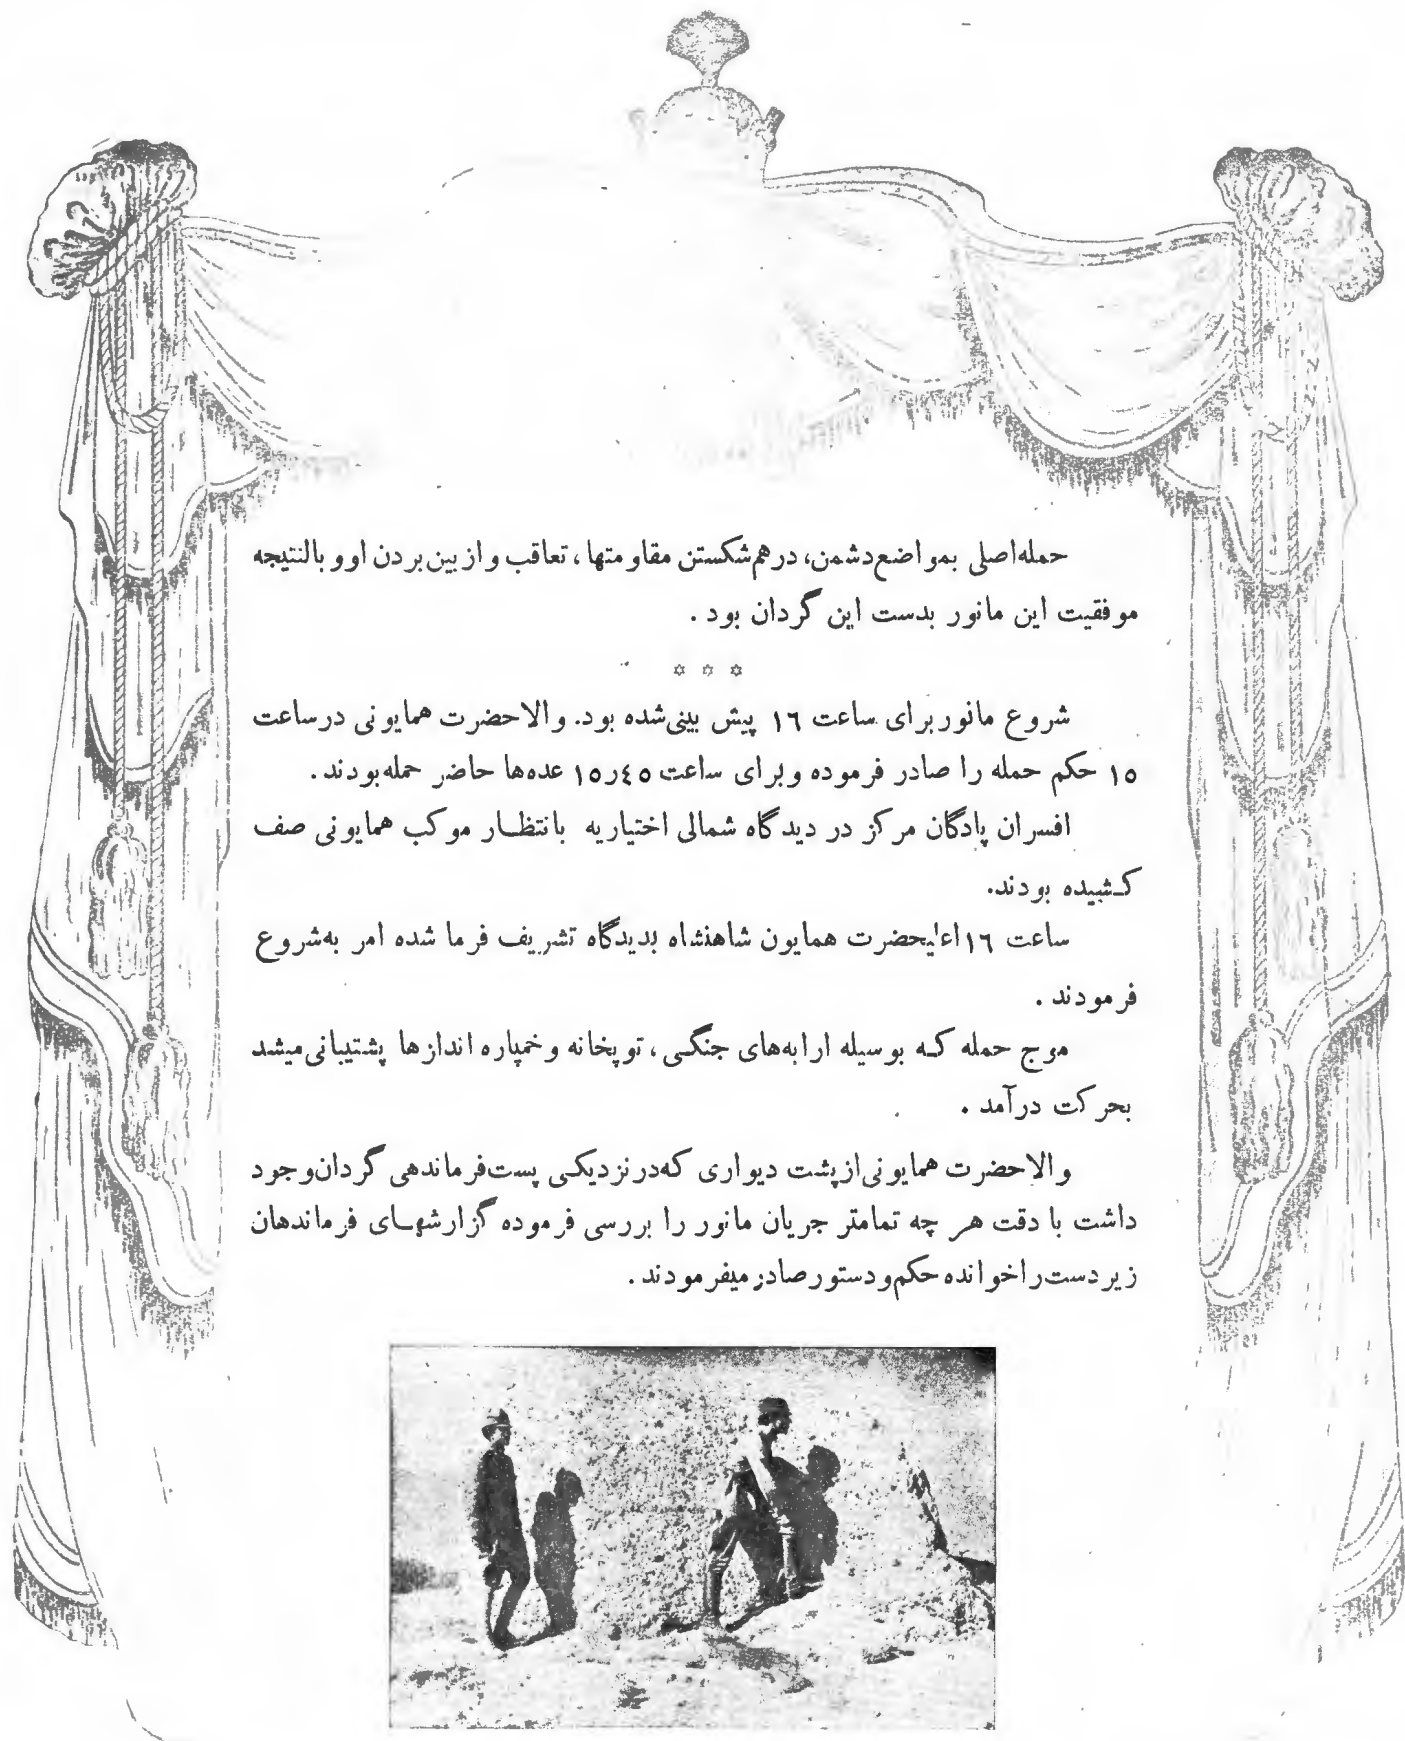 حمله‌اصلی بمواضع‌دشمن، درهم‌شکستن مقاومتها، تعاقب و از بین‌بردن او و بالنتیجه
موفقیت این مانور بدست این گردان بود .
✡ ✡ ✡
شروع مانور برای ساعت ۱۶ پیش بینی‌شده بود. والاحضرت همایونی درساعت
۱۵ حکم حمله را صادر فرموده وبرای ساعت ۴۵ر۱۵ عده‌ها حاضر حمله‌بودند .
افسران پادگان مرکز در دیدگاه شمالی اختیاریه بانتظـار موکب همایونی صف
کـشیده بودند.
ساعت ۱۶ اعلیحضرت همایون شاهنشاه بدیدگاه تشریف فرما شده امر به‌شروع
فرمودند .
موج حمله کـه بوسیله ارابه‌های جنگـی، توپخانه و خمپاره اندازها پشتیبانی‌میشد
بحرکت درآمد .
والاحضرت همایونی‌از پشت دیواری که‌در نزدیکـی پست‌فرماندهی گردان‌وجود
داشت با دقت هر چه تمامتر جریان مانور را بررسی فرموده گزارشهـای فرماندهان
زیردست‌را خوانده حکم‌ودستور صادر میفرمودند .